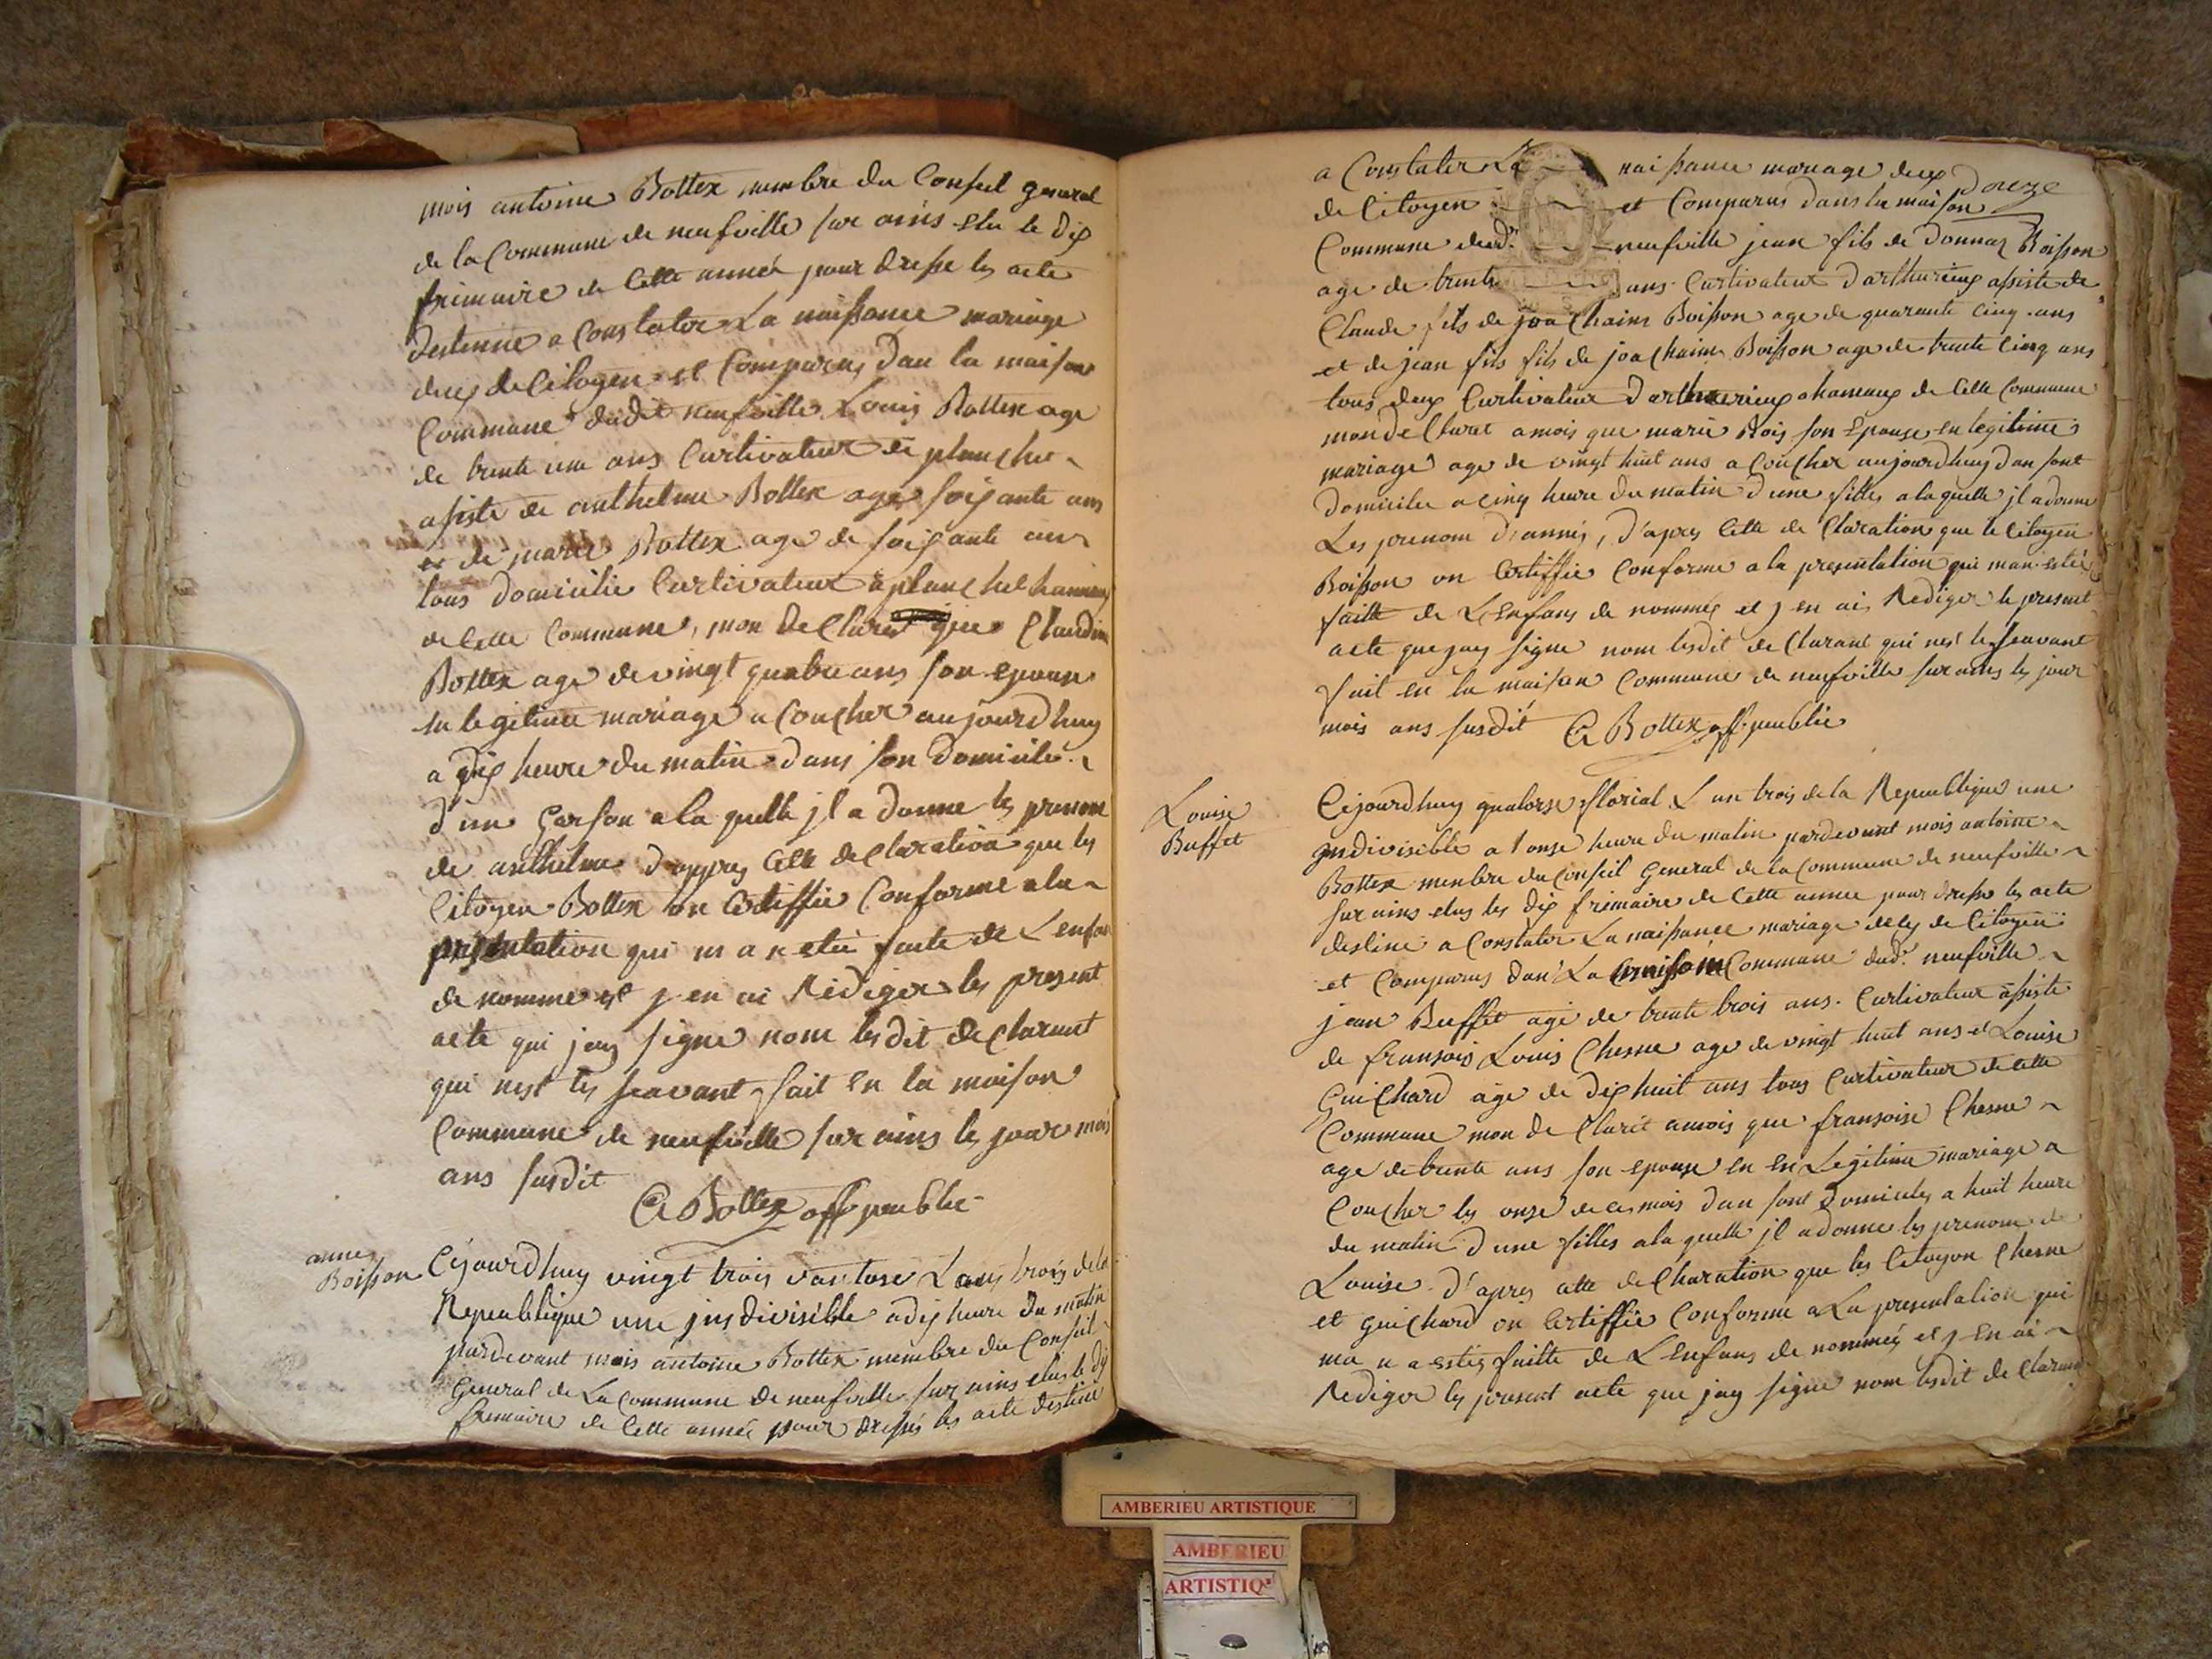 mois antoine Bottex membre du Conseil general
de la Commune de neufville sur ains elu le dix
frimaire de cette année pour dresse les acte
destinne a Constater La naissance mariage
deces de Citoyen et Comparus dan la maison
Commune dudit neufville Louis Bottex age
de trente un ans Curtivateur de planche
asiste de anthelme Bottex age soixante ans
et de marie Bottex age de soixante ans
tous domicilie Curtivateur a planche hameau
de Cette Commune, mon declaret que Claudine
Bottex age de vingt quatre ans son epouse
en legitime mariage a Coucher aujourdhuy
a dix heure du matin dans son domicile
d'un Garson a la quelle jl a donne les prenom
de anthelme d'appres Cette declaration que les
Citoyen Bottex on Certiffie Conforme a la
presentation qui m a n etée faite de L'enfan
de nomme et j en ai Rediger les present
acte qui jay signe nom lesdit declarant
qui nest les seavant fait en la maison
Commune de neufville sur ains les jour mois
ans susdit
A Bottex off publie
anne
Boisson
Cejourdhuy vingt trois vantose L ans trois de la
Republique une jndivisible a dix heure du matin
pardevant mois antoine Bottex membre du Conseil
General de La Commune de neufville sur ains elus le dix
frimaire de Cette année pour dressés les acte destine
douze
a Constater La naissance mariage deces
de Citoyen et Comparus dans la maison
Commune dud. neufville jean fils de donnaz Boisson
age de trente ans Curtivateur d'arthurieux assiste de
Claude fils de joachaim Boisson age de quarante cinq ans
et de jean fils fils de joachaim Boisson age de trente Cinq ans
tous deux Curtivateur d'arthurieux ahameaux de Cette Commune
mon declaret amois que marie Bois son Epouse en legitime
mariage age de vingt huit ans a Coucher aujourdhuy dan sont
domicile a cinq heure du matin d'une filles a la quelle jl a donne
Les prenom d'anne, d'apres Cette declaration que le Citoyen
Boisson on Certiffie Conforme a la presentation qui man etée
faitte de L'Enfans de nommés et j en ai Rediger le present
acte que jay signe nom lesdit declarant qui nest le seavant
fait en la maison Commune de neufville sur ains les jour
mois ans susdit A Bottex off. publie
Louise
Buffet
Cejourdhuy quatorse florial L an trois de la Republique une
jndivisible a l onse heure du matin pardevant mois antoine
Bottex menbre du Conseil General de la Commune de neufville
sur ains elus les dix frimaire de Cette annee pour dresse les acte
destine a Constater La naissance mariage deces de Citoyen
et Comparus dan La maison Commune dud. neufville
jean Buffet age de trente trois ans Curtivateur assiste
de fransois Louis Chesne age de vingt huit ans et Louise
Guichard age de dix huit ans tous Curtivateur de Cette
Commune mon declaret amois que fransoise Chesne
age de trente ans son epouse en en Legitime mariage a
Coucher les onse de ce mois dan sont domicilles a huit heure
du matin d'une filles a la quelle jl a donne les prenom de
Louise d'apres cette declaration que les Citoyen Chesne
et guichard on Certiffie Conforme a La presentation qui
ma n a estés faitte de L'Enfans de nommés et j En ai
Rediger les present acte que jay signe nom lesdit declarant
AMBERIEU ARTISTIQUE
AMBERIEU
ARTISTIQ